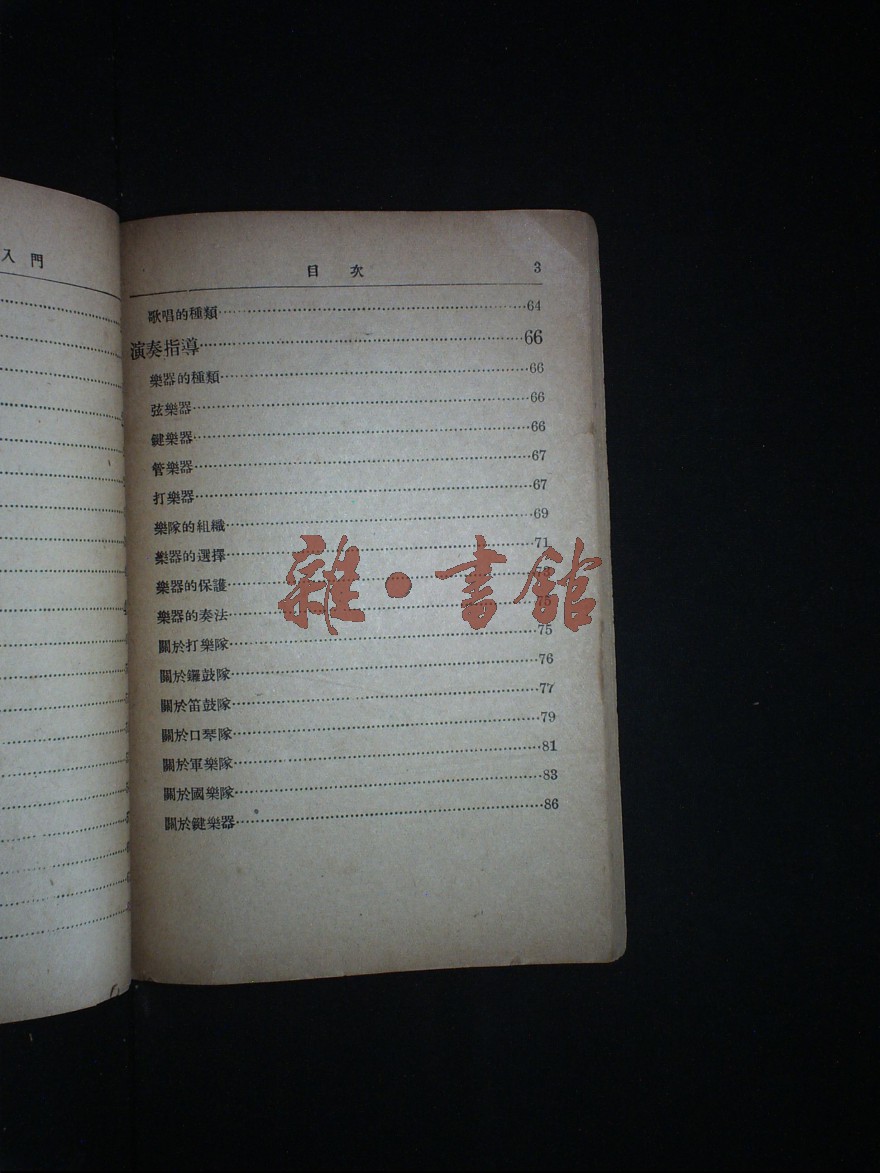 入門
目 次 3
歌唱的種類 64
演奏指導 66
樂器的種類 66
弦樂器 66
鍵樂器 66
管樂器 67
打樂器 67
樂隊的組織 69
樂器的選擇 71
樂器的保護
樂器的奏法
關於打樂隊 75
關於鑼鼓隊 76
關於笛鼓隊 77
關於口琴隊 79
關於軍樂隊 81
關於國樂隊 83
關於鍵樂器 86
雜·書館